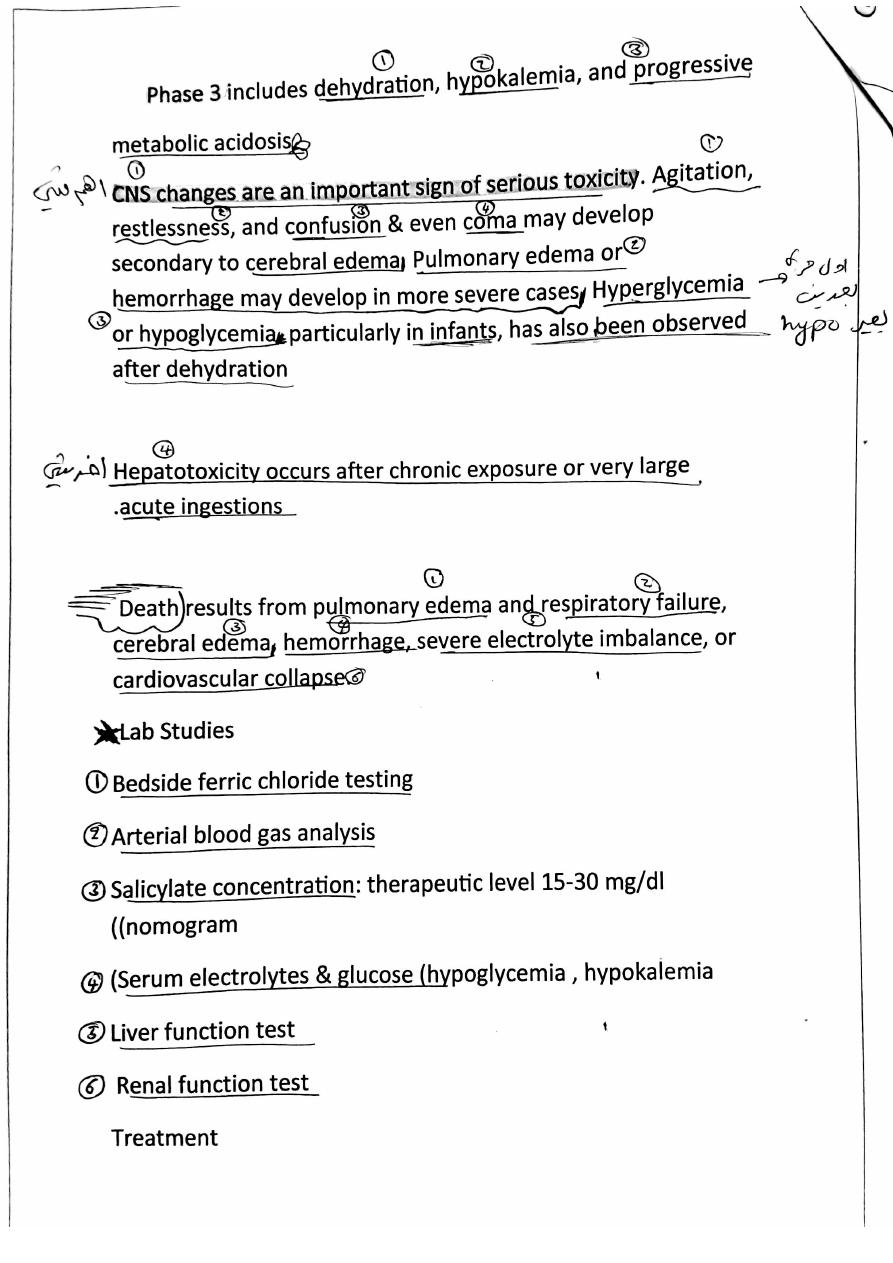 Phase 3 includes dehydration, hypokalemia, and progressive
metabolic acidosis
CNS changes are an important sign of serious toxicity. Agitation,
restlessness, and confusion & even coma may develop
secondary to cerebral edema, Pulmonary edema or
hemorrhage may develop in more severe cases, Hyperglycemia
or hypoglycemia, particularly in infants, has also been observed
after dehydration
بعدين
بعد hypo
Hepatotoxicity occurs after chronic exposure or very large
.acute ingestions
Death results from pulmonary edema and respiratory failure,
cerebral edema, hemorrhage, severe electrolyte imbalance, or
cardiovascular collapse
Lab Studies
① Bedside ferric chloride testing
② Arterial blood gas analysis
③ Salicylate concentration: therapeutic level 15-30 mg/dl
((nomogram
④ (Serum electrolytes & glucose (hypoglycemia , hypokalemia
⑤ Liver function test
⑥ Renal function test
Treatment